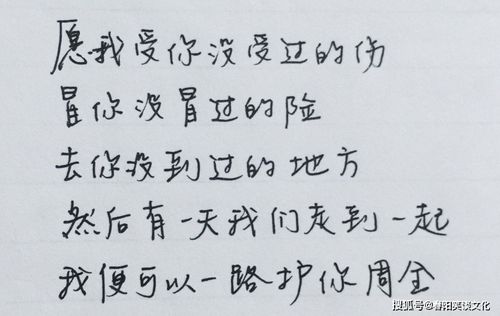 愿我受你没受过的伤
冒你没冒过的险
去你没到过的地方
然后有一天我们走到一起
我便可以一路护你周全
搜狐号@春阳笑谈文化